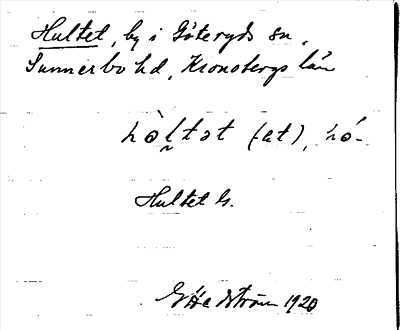 Hultet, by i Göteryds sn,
Sunnerbo hd, Kronobergs län
hòl̰tət (-ət), hó-
Hultet G.
G Hedström 1920